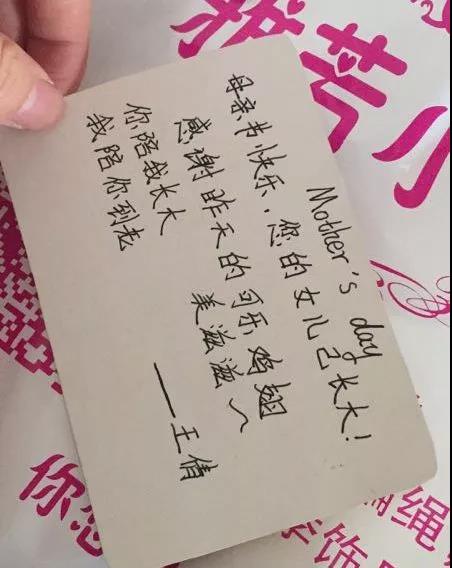 Mother's day
母亲节快乐,您的女儿已长大!
感谢昨天的可乐鸡翅
美滋滋~
你陪我长大
我陪你到老
——王倩
若小
你
编绳
饰